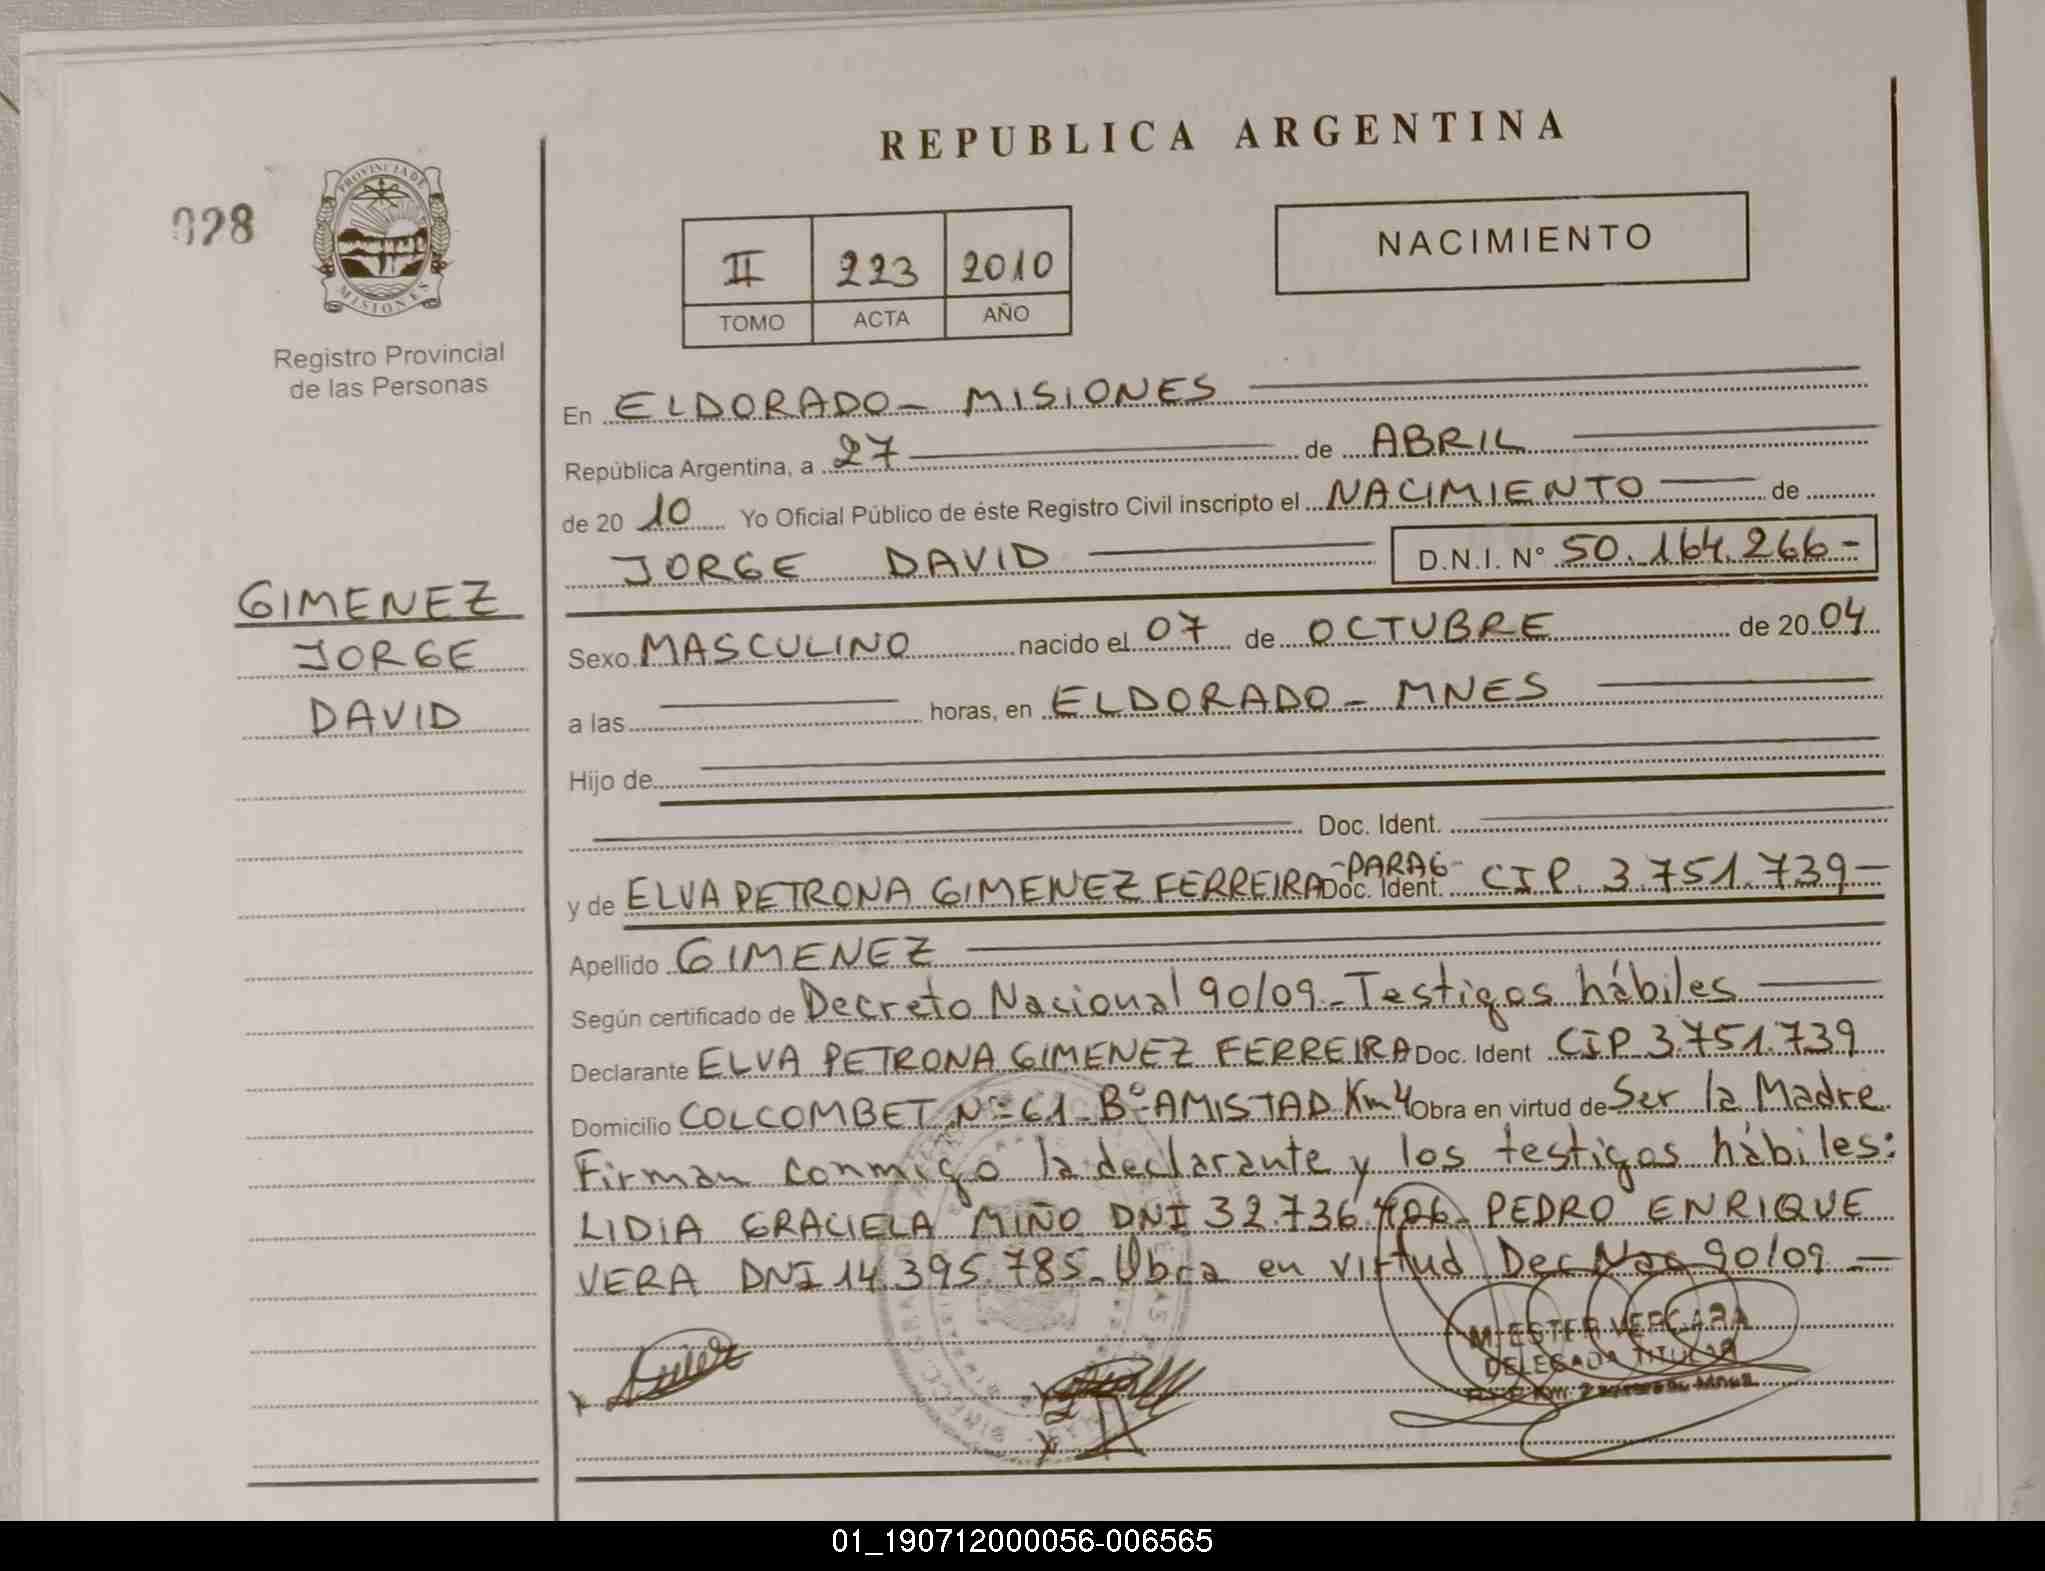 REPUBLICA ARGENTINA
028
PROVINCIA DE
MISIONES
Registro Provincial
de las Personas
II 223 2010
TOMO ACTA AÑO
NACIMIENTO
GIMENEZ
JORGE
DAVID
En ELDORADO - MISIONES
República Argentina, a 27 de ABRIL
de 20 10 Yo Oficial Público de éste Registro Civil inscripto el NACIMIENTO de
JORGE DAVID D.N.I. N° 50.164.266-
Sexo MASCULINO nacido el 07 de OCTUBRE de 20 04
a las horas, en ELDORADO - MNES
Hijo de
Doc. Ident.
y de ELVA PETRONA GIMENEZ FERREIRA -PARAG- Doc. Ident. CIP. 3.751.739-
Apellido GIMENEZ
Según certificado de Decreto Nacional 90/09 - Testigos hábiles
Declarante ELVA PETRONA GIMENEZ FERREIRA Doc. Ident CIP 3.751.739
Domicilio COLCOMBET Nº 61 - Bº AMISTAD Km 4 Obra en virtud de Ser la Madre
Firman conmigo la declarante y los testigos hábiles:
LIDIA GRACIELA MIÑO DNI 32.736.406 - PEDRO ENRIQUE
VERA DNI 14.395.785 - Obra en virtud Dec Nac 90/09 -
M. ESTER VERGARA
DELEGADA TITULAR
01_190712000056-006565